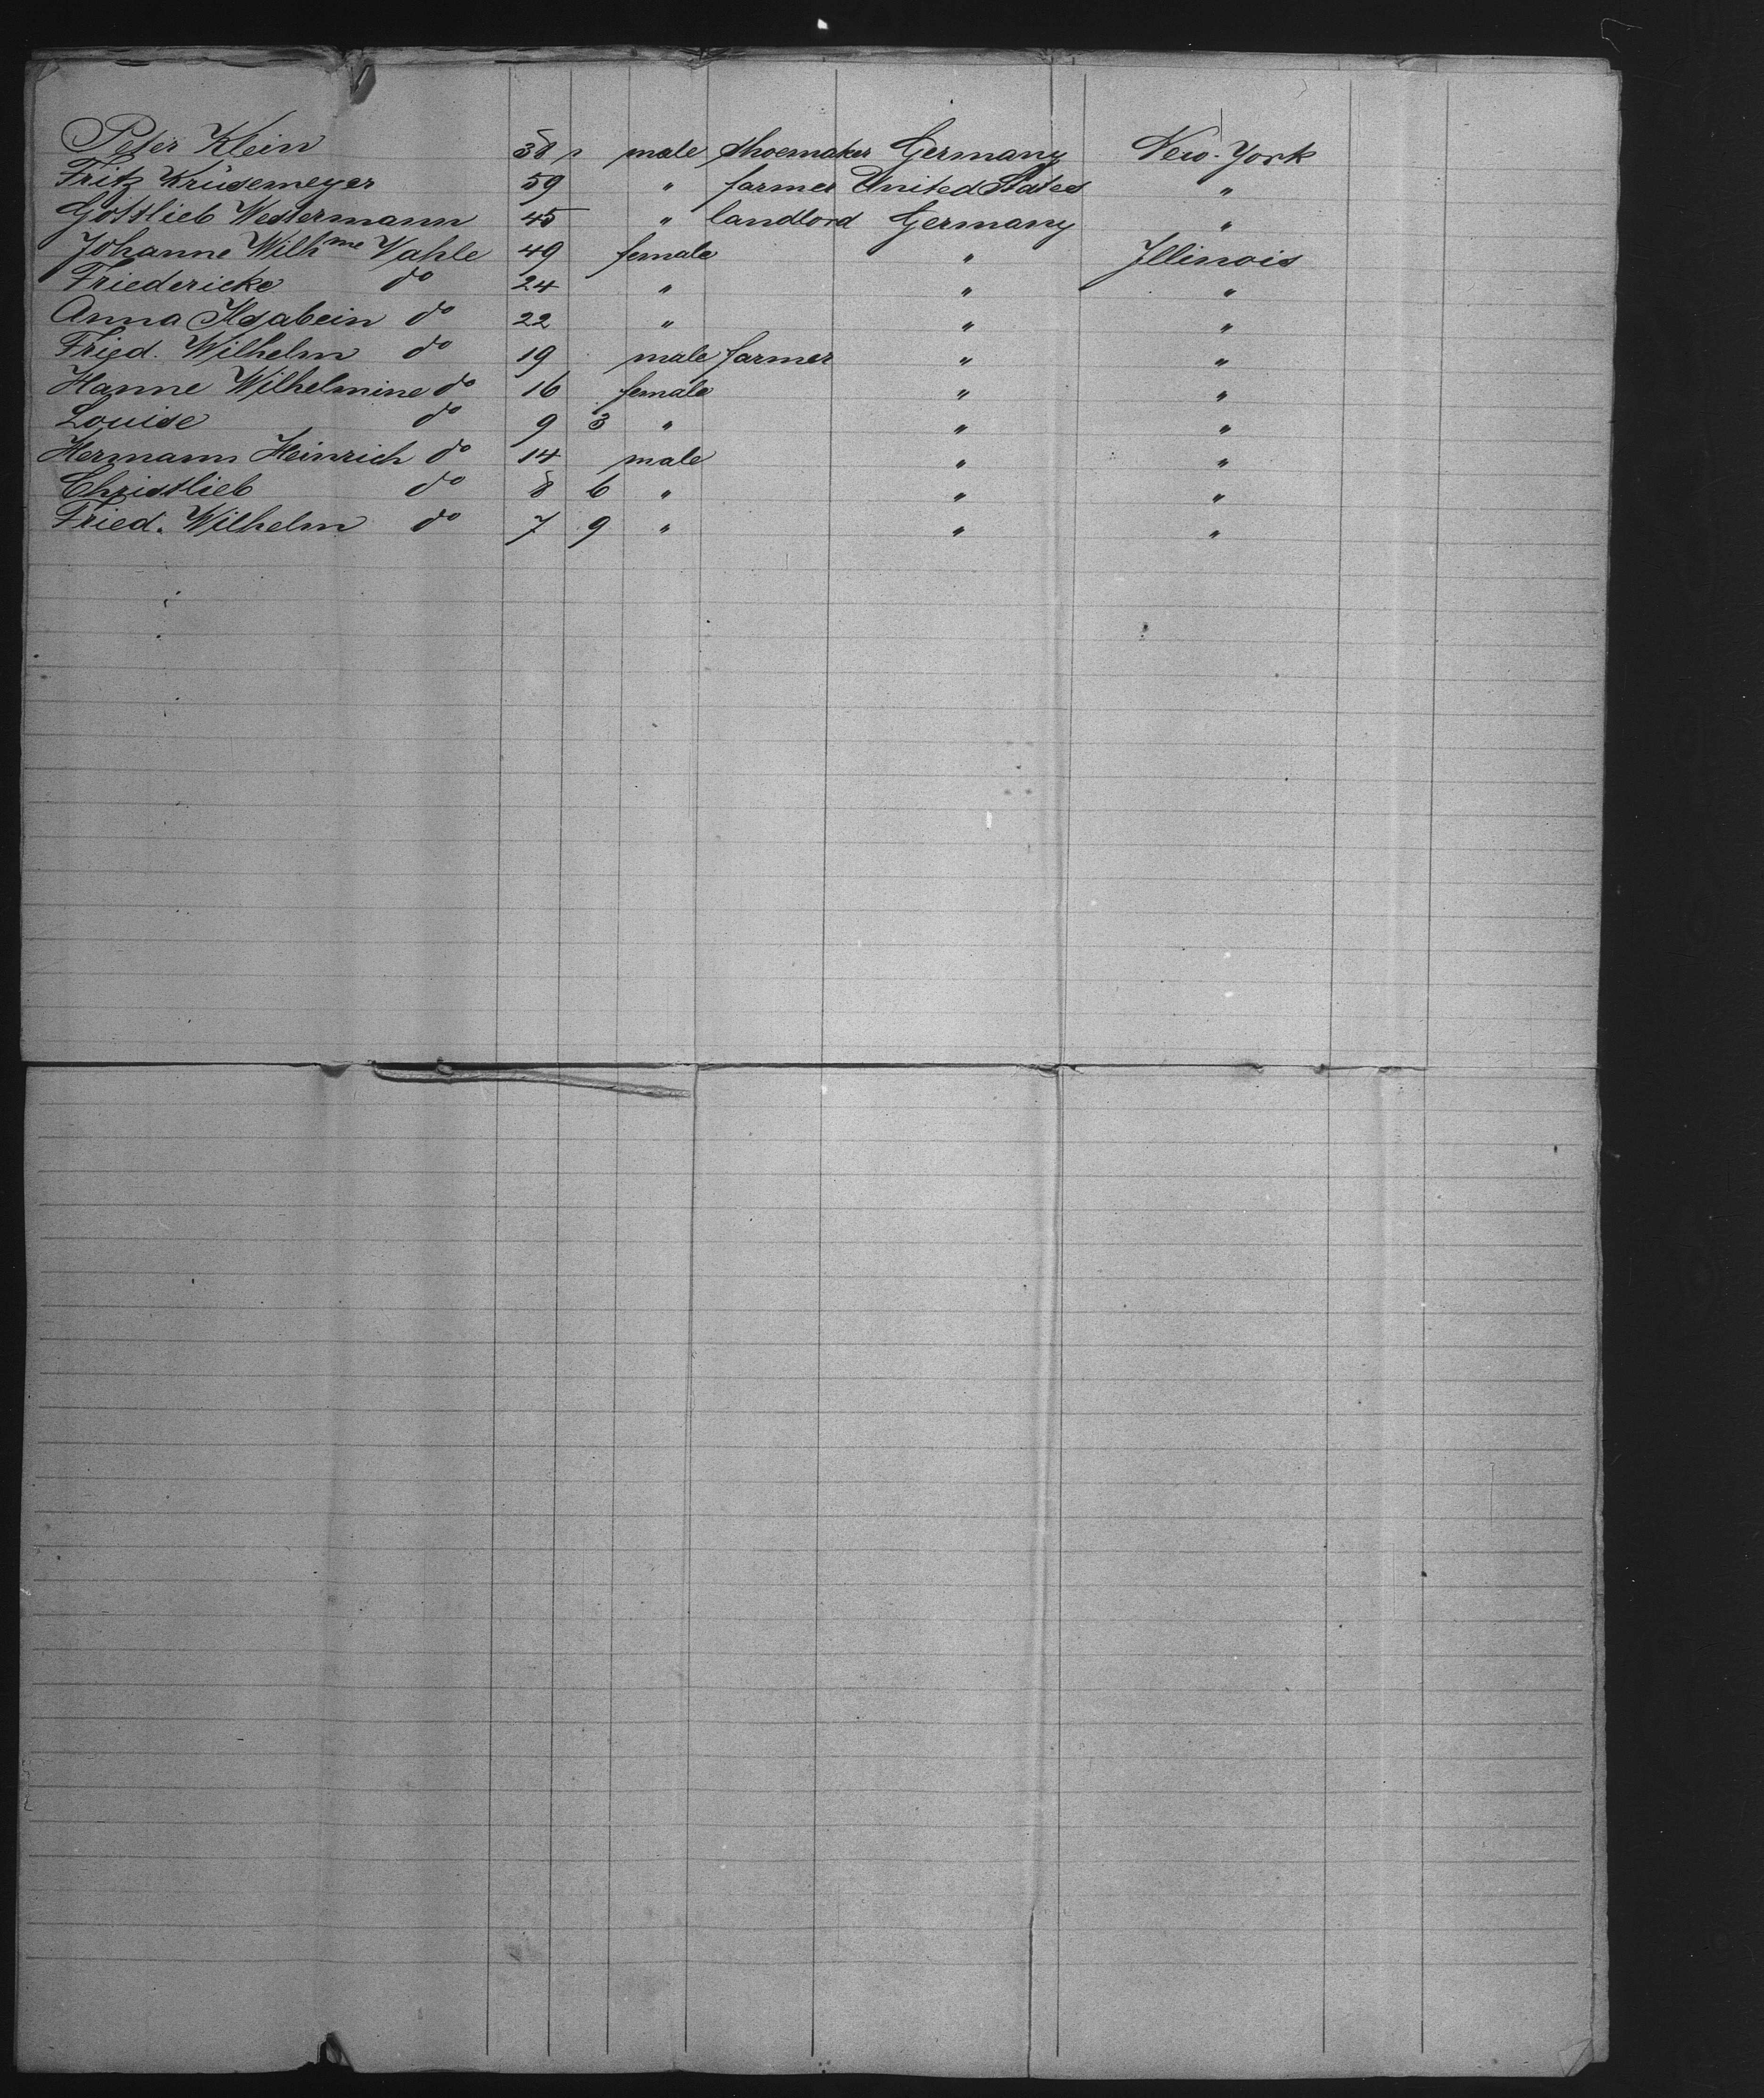 Peter Klein 38 male shoemaker Germany New-York
Fritz Krüsemeyer 59 " farmer United States "
Gottlieb Westermann 45 " landlord Germany "
Johanne Wilhme Vahle 49 female " Illinois
Friedericke do 24 " " "
Anna Ilsabein do 22 " " "
Fried. Wilhelm do 19 male farmer " "
Hanne Wilhelmine do 16 female " "
Louise do 9 3 " " "
Hermann Heinrich do 14 male " "
Christlieb do 8 6 " " "
Fried. Wilhelm do 7 9 " " "